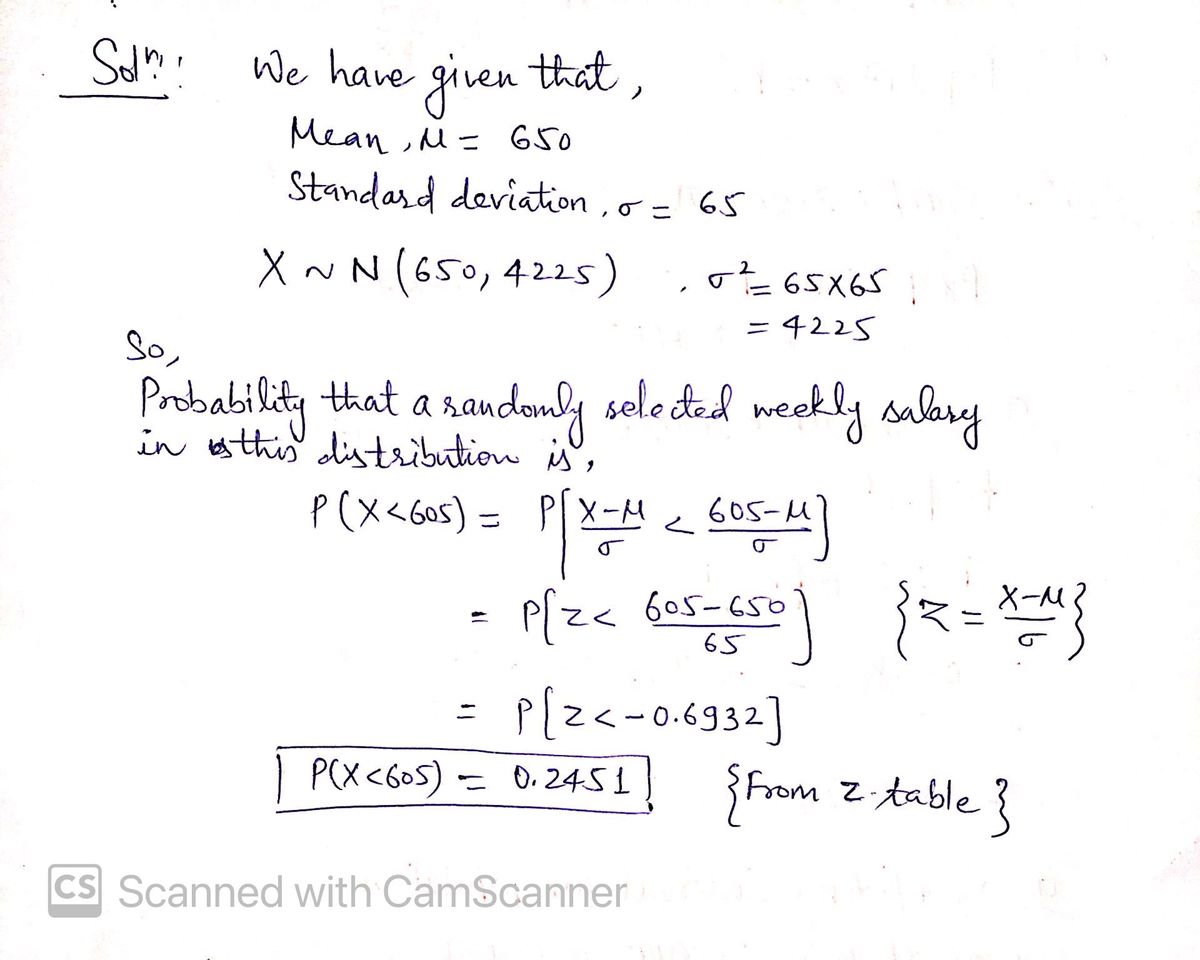 Solⁿ: We have given that,
Mean, μ = 650
Standard deviation, σ = 65
X ~ N (650, 4225) , σ² = 65X65
= 4225
So,
Probability that a randomly selected weekly salary
in this distribution is,
P(X<605) = P[(X-μ)/σ < (605-μ)/σ]
= P[Z< (605-650)/65] {Z = (X-μ)/σ}
= P[Z<-0.6932]
P(X<605) = 0.2451 {From Z-table}
CS Scanned with CamScanner